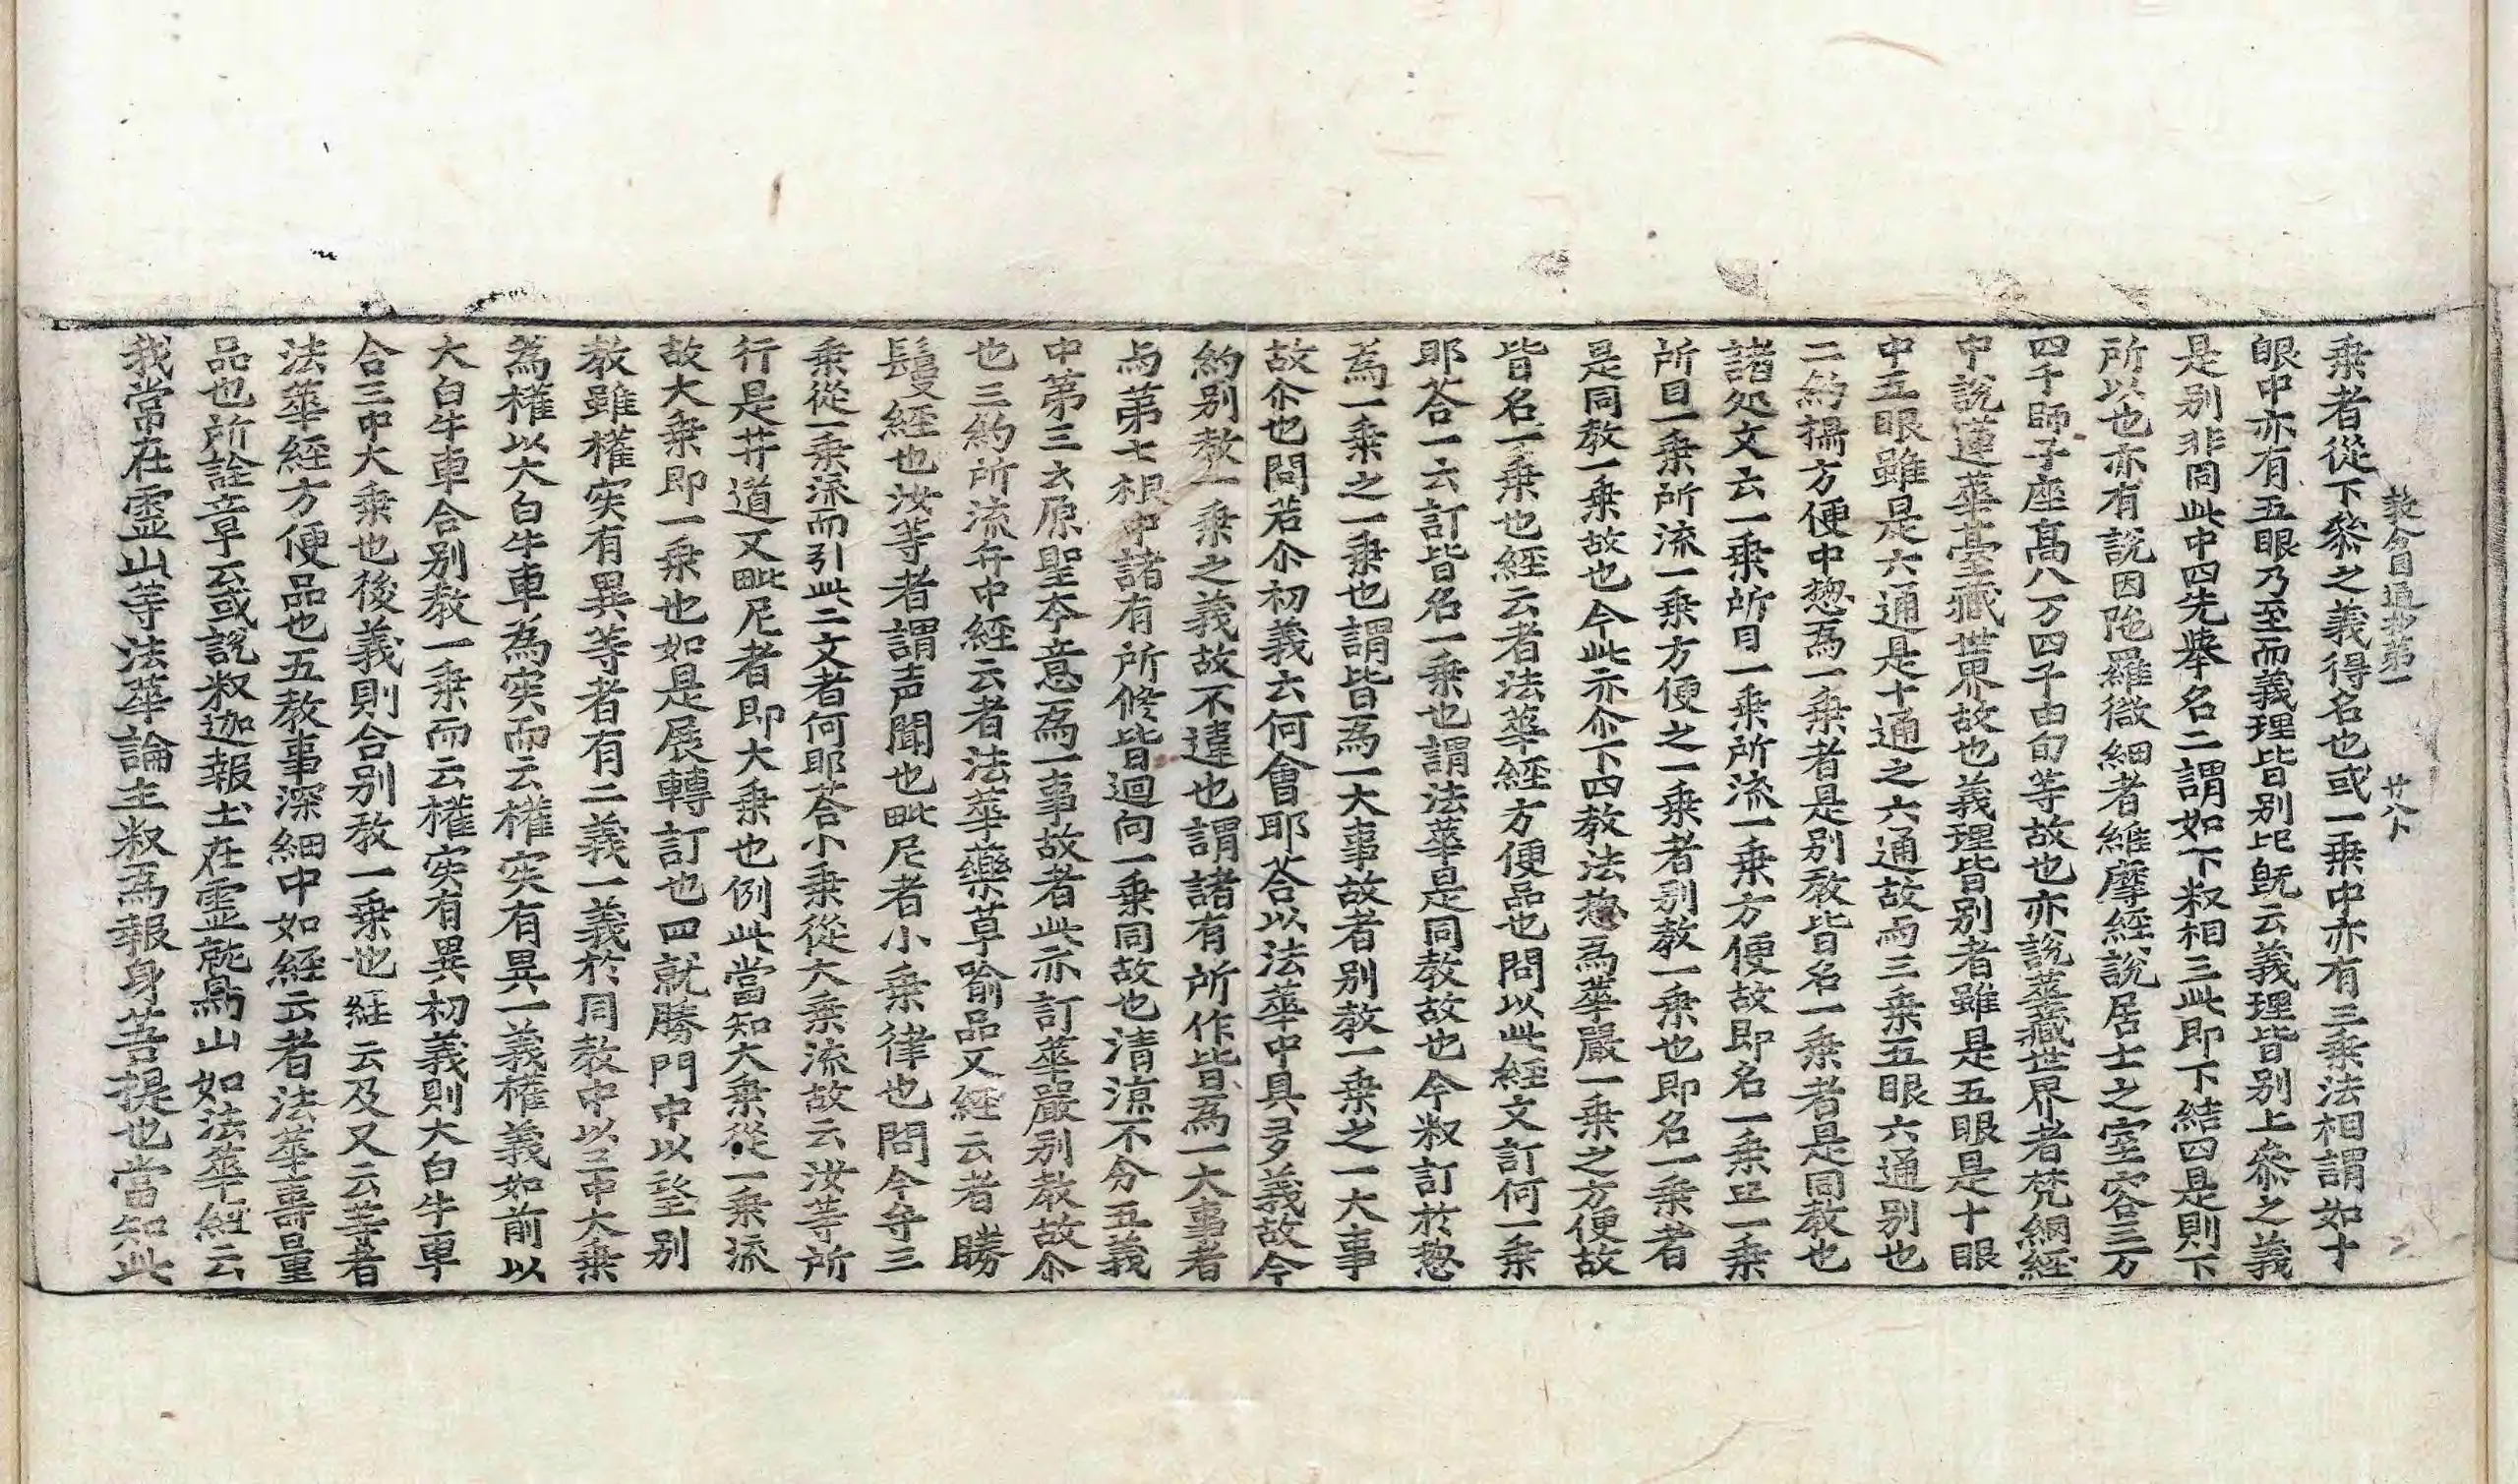 教分圓通抄第一 廿八卜
乘者從下叅之義得名也或一乗中亦有三乗法相謂如十
眼中亦有五眼乃至而義理皆別此旣云義理皆別上叅之義
是別非同此中四先舉名二謂如下釈相三此即下結四是則下
所以也亦有說因陁羅微細者維摩經說居士之室容三万
四千師子座高八万四千由旬等故也亦說華藏世界者梵網經
中說蓮華臺藏世界故也義理皆別者雖是五眼是十眼
中五眼雖是六通是十通之六通故而三乗五眼六通別也
二約攝方便中惣為一乗者是別敎皆名一乗者是同教也
諸处文云一乗所目一乗所流一乗方便故即名一乗㠯一乗
所目一乗所流一乗方便之一乗者別教一乗也即名一乗者
是同敎一乗故也今此亦尒下四教法惣為華嚴一乗之方便故
皆名一乗也經云者法華經方便品也問以此經文訂何一乗
耶荅一云訂皆名一乗也謂法華是同教故也今釈訂於惣
為一乗之一乗也謂皆為一大事故者別教一乗之一大事
故尒也問若尒初義云何會耶荅以法華中具多義故今
約別教一乗之義故不違也謂諸有所作皆為一大事者
与苐七根中諸有所修皆迴向一乗同故也清涼不分五義
中第三云原聖夲意為一事故者此亦訂華嚴別教故尒
也三約所流弁中經云者法華藥草喻品又經云者勝
鬘經也汝等者謂声聞也毗尼者小乗律也問今寺三
乗從一乗流而引此二文者何耶荅小乗從大乗流故云汝䓁所
行是井道又毗尼者即大乗也例此當知大乗從一乗流
故大乗即一乗也如是展轉訂也四就勝門中以望別
教雖權实有異等者有二義一義於同教中以三中大乗
為權以大白牛車為实而云權实有異一義權義如前以
大白牛車合別教一乗而云權实有異初義則大白牛車
合三中大乗也後義則合別教一乗也經云及又云䓁者
法華經方便品也五敎事深細中如經云者法華壽量
品也所詮章云或說釈迦報土在霊鷲山如法華經云
我常在霊山等法華論主釈為報身菩提也當知此